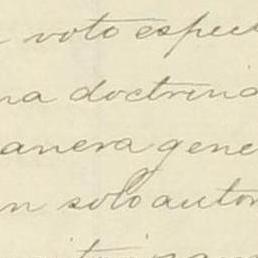 voto espec
na doctrina
anera gene
n solo autor